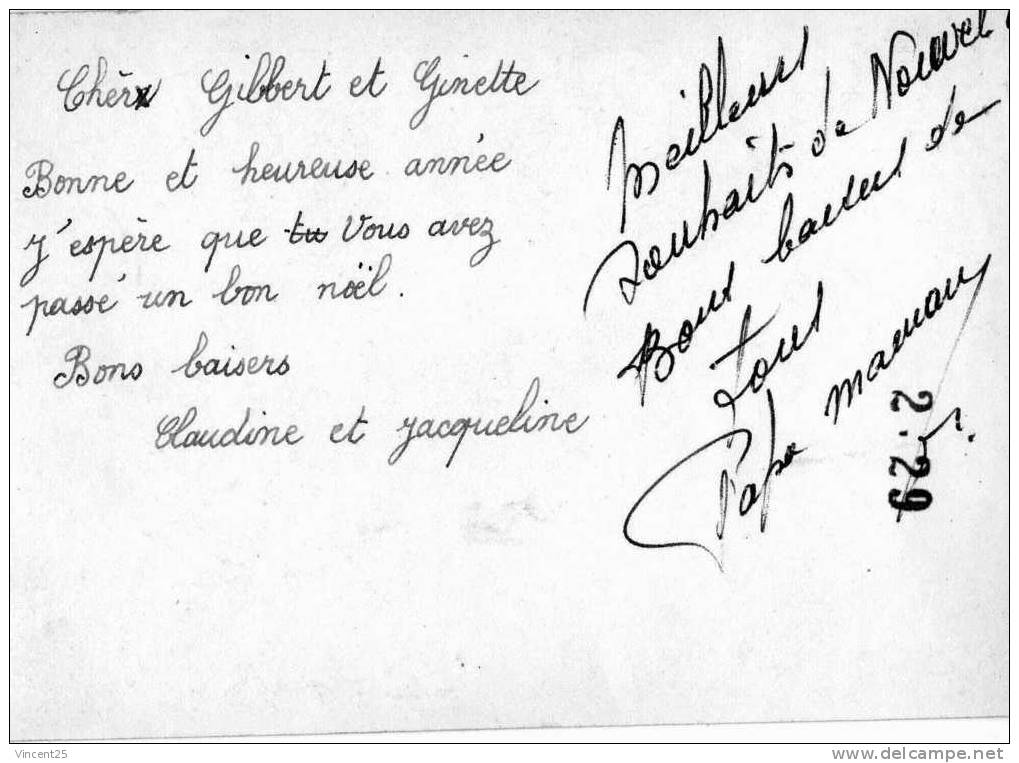 Chèrx Gibbert et Ginette
Bonne et heureuse année
j'espère que tu Vous avez
passé un bon nöel.
Bons baisers
Claudine et jacqueline
Meilleurs
souhaits de Nouvel
Bons baisers de
tous
Papa maman
2.29
Vincent25
www.delcampe.net